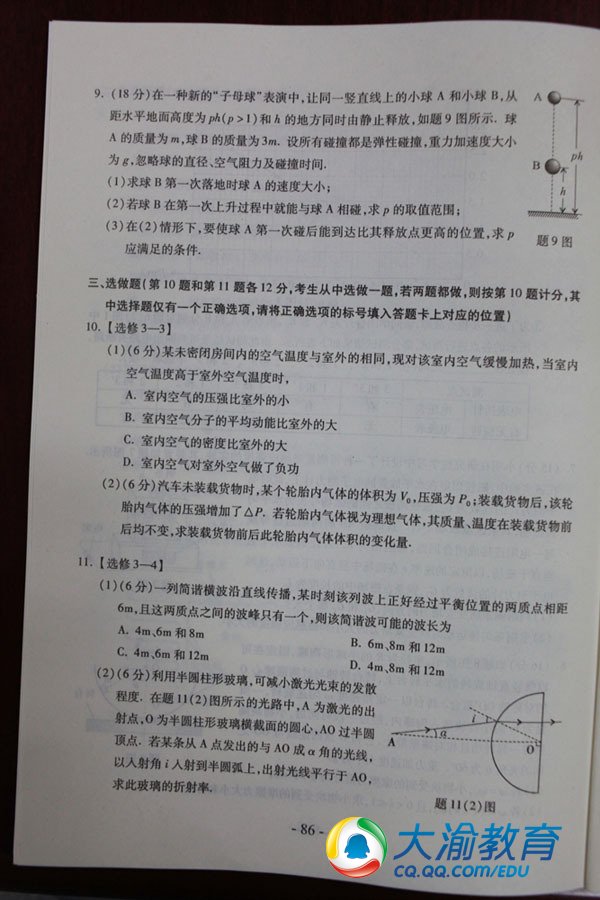 9. (18 分)在一种新的“子母球”表演中,让同一竖直线上的小球 A 和小球 B,从
距水平地面高度为 ph(p>1)和 h 的地方同时由静止释放,如题 9 图所示. 球
A 的质量为 m,球 B 的质量为 3m. 设所有碰撞都是弹性碰撞,重力加速度大小
为 g,忽略球的直径、空气阻力及碰撞时间.
(1)求球 B 第一次落地时球 A 的速度大小;
(2)若球 B 在第一次上升过程中就能与球 A 相碰,求 p 的取值范围;
(3)在(2)情形下,要使球 A 第一次碰后能到达比其释放点更高的位置,求 p
应满足的条件.
A
ph
B
h
题 9 图
三、选做题(第 10 题和第 11 题各 12 分,考生从中选做一题,若两题都做,则按第 10 题计分,其
中选择题仅有一个正确选项,请将正确选项的标号填入答题卡上对应的位置)
10.【选修 3—3】
(1)(6 分)某未密闭房间内的空气温度与室外的相同,现对该室内空气缓慢加热,当室内
空气温度高于室外空气温度时,
A. 室内空气的压强比室外的小
B. 室内空气分子的平均动能比室外的大
C. 室内空气的密度比室外的大
D. 室内空气对室外空气做了负功
(2)(6 分)汽车未装载货物时,某个轮胎内气体的体积为 V₀,压强为 P₀;装载货物后,该轮
胎内气体的压强增加了△P. 若轮胎内气体视为理想气体,其质量、温度在装载货物前
后均不变,求装载货物前后此轮胎内气体体积的变化量.
11.【选修 3—4】
(1)(6 分)一列简谐横波沿直线传播,某时刻该列波上正好经过平衡位置的两质点相距
6m,且这两质点之间的波峰只有一个,则该简谐波可能的波长为
A. 4m、6m 和 8m
B. 6m、8m 和 12m
C. 4m、6m 和 12m
D. 4m、8m 和 12m
(2)(6 分)利用半圆柱形玻璃,可减小激光光束的发散
程度. 在题 11(2)图所示的光路中,A 为激光的出
射点,O 为半圆柱形玻璃横截面的圆心,AO 过半圆
顶点. 若某条从 A 点发出的与 AO 成 α 角的光线,
以入射角 i 入射到半圆弧上,出射光线平行于 AO,
求此玻璃的折射率.
A
α
i
O
题 11(2)图
- 86 -
大渝教育
CQ.QQ.COM/EDU